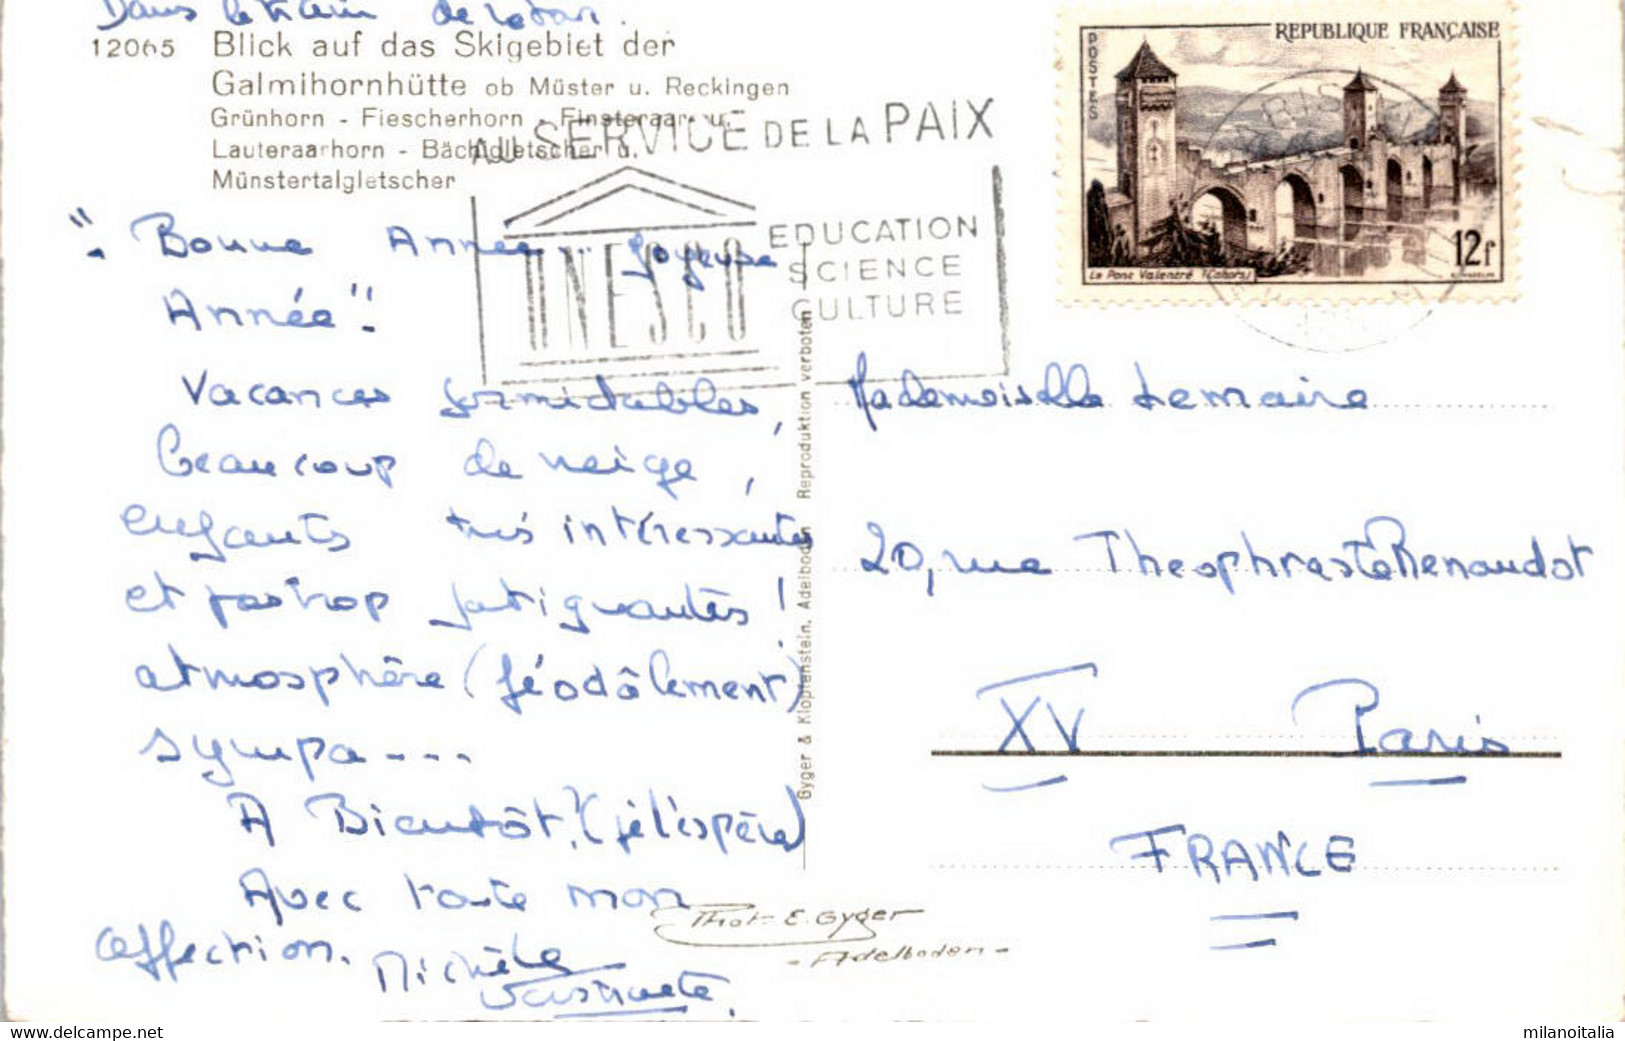 Dans le train de retour.
12065 Blick auf das Skigebiet der
Galmihornhütte ob Müster u. Reckingen
Grünhorn - Fiescherhorn - Finsteraar- u.
Lauteraarhorn - Bächigletscher u.
Münstertalgletscher
AU SERVICE DE LA PAIX
UNESCO
EDUCATION
SCIENCE
CULTURE
REPUBLIQUE FRANÇAISE
POSTES
12f
Le Pont Valentré (Cahors)
PARIS
"- Bonne Année - Joyeuse
Année"-
Vacances formidables,
beaucoup de neige,
enfants très intéressantes
et pas trop fatiguantes !
atmosphère (féodâlement)
sympa ---
A Bientôt, (je l'espère)
Avec toute mon
affection. Michèle
Gyger & Klopfenstein, Adelboden Reproduktion verboten
Mademoiselle Lemaire
20, rue Theophraste Renaudot
XV Paris
FRANCE
Phot. E. Gyger
- Adelboden -
milanoitalia